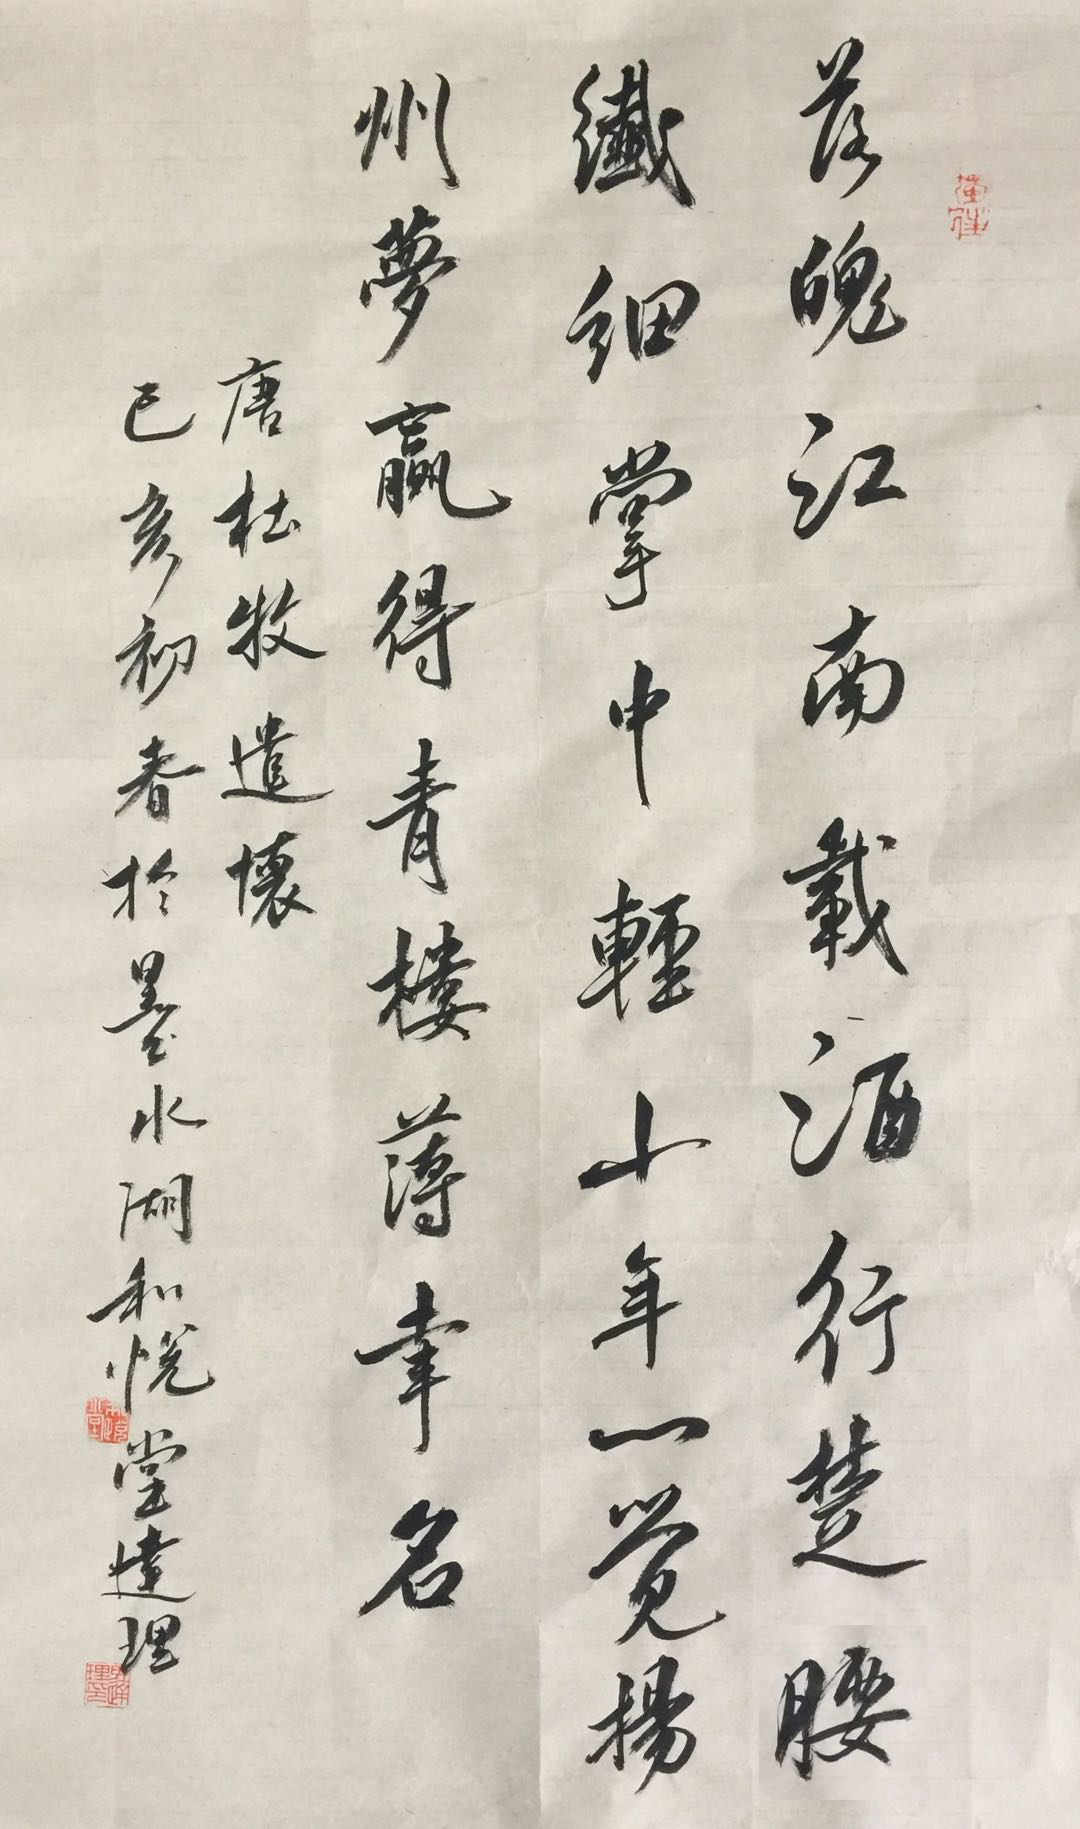 落魄江南載酒行楚腰
纖細掌中輕十年一覺揚
州夢贏得青樓薄幸名
唐杜牧遣懷
己亥初春於墨水湖和悅堂達理